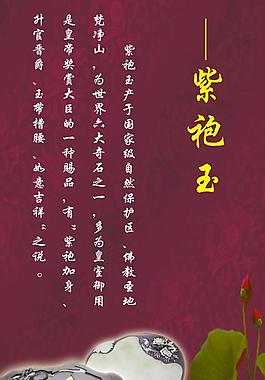 ——紫袍玉
紫袍玉产于国家级自然保护区、佛教圣地
梵净山,为世界六大奇石之一,多为皇室御用
是皇帝奖赏大臣的一种赐品,有“紫袍加身、
升官晋爵、玉带槽腰、如意吉祥”之说。